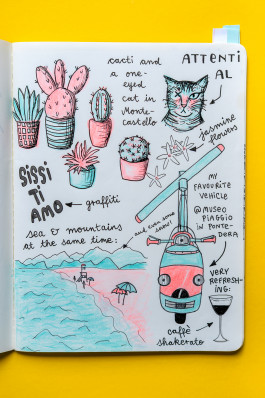 cacti and
a one-
eyed
cat in
Monte-
castello
ATTENTI
AL
jasmine
flowers
SISSI
TI
AMO
graffiti
MY
FAVOURITE
VEHICLE
@MUSEO
PIAGGIO
IN PONTE-
DERA
sea & mountains
at the same time:
and even some
snow!
VERY
REFRESH-
ING:
caffè
shakerato